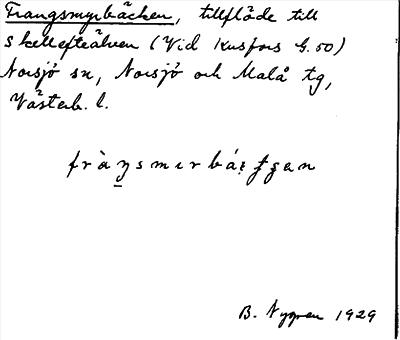 Frangsmyrbäcken, tillflöde till
Skellefteälven (Vid Kusfors G. 50)
Norsjö sn, Norsjö och Malå tg,
Västerb. l.
B. Nygren 1929